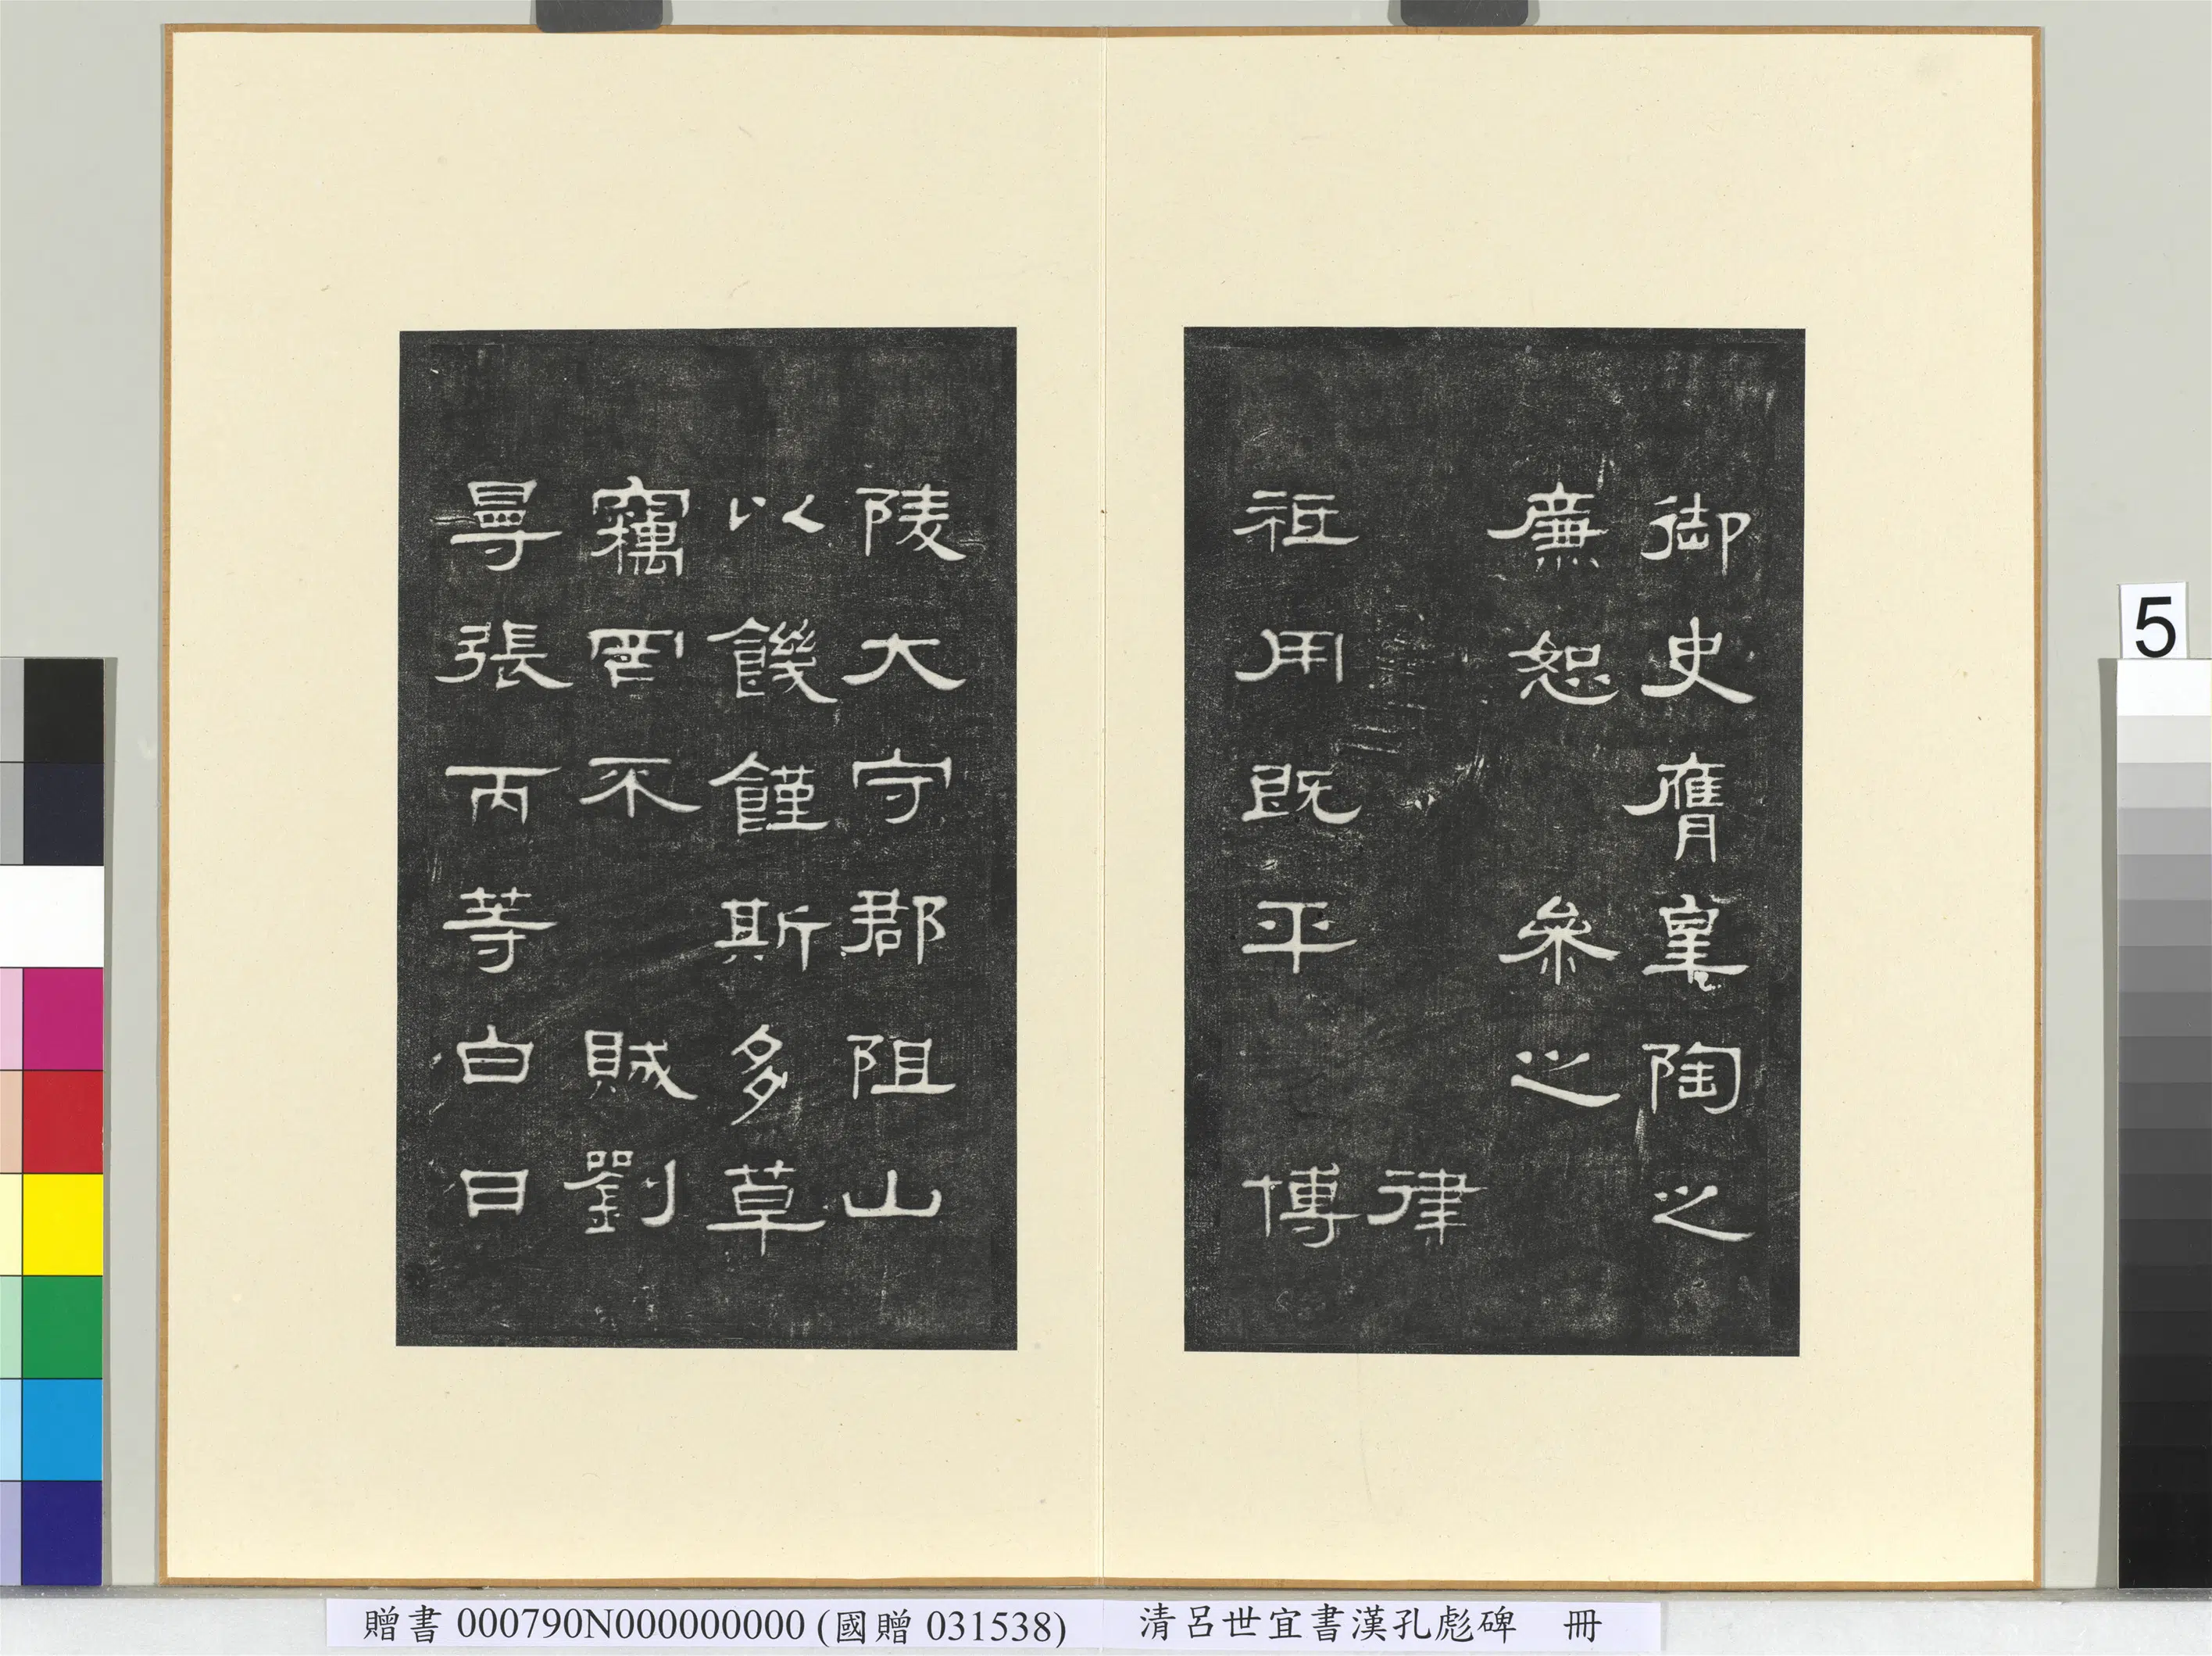 御史膺皐陶之
廉恕 參之
律
祗用既平 博
陵大守郡阻山
以饑饉斯多草
竊罔不 賊劉
曼張丙等白日
5
贈書 000790N000000000 (國贈 031538) 清呂世宜書漢孔彪碑 冊